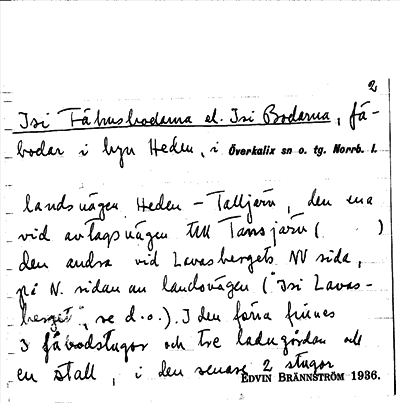 2
Isi Fähusbodarna el. Isi Bodarna, fä-
bodar i byn Heden, i Överkalix sn o. tg. Norrb. l.
landsvägen Heden – Talljärv, den ena
vid avtagsvägen till Tansjärv ( )
den andra vid Lavasbergets NV sida,
på N. sidan av landsvägen ("Isi Lavas-
berget", se d.o.). I den förra finnes
3 fäbodstugor och tre ladugårdar och
en stall, i den senare 2 stugor
EDVIN BRÄNNSTRÖM 1936.